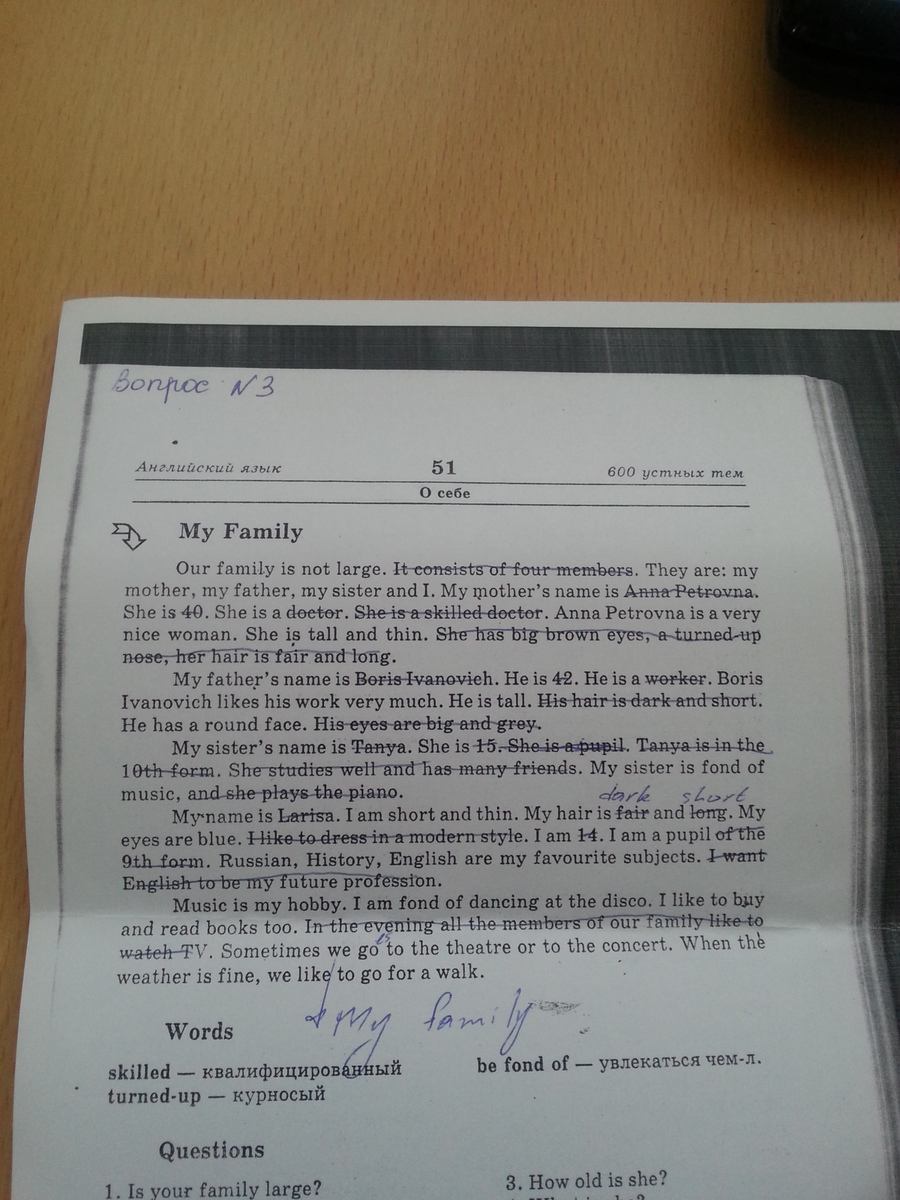 Вопрос N 3
Английский язык 51 600 устных тем
О себе
My Family
Our family is not large. It consists of four members. They are: my
mother, my father, my sister and I. My mother's name is Anna Petrovna.
She is 40. She is a doctor. She is a skilled doctor. Anna Petrovna is a very
nice woman. She is tall and thin. She has big brown eyes, a turned-up
nose, her hair is fair and long.
My father's name is Boris Ivanovich. He is 42. He is a worker. Boris
Ivanovich likes his work very much. He is tall. His hair is dark and short.
He has a round face. His eyes are big and grey.
My sister's name is Tanya. She is 15. She is a pupil. Tanya is in the
10th form. She studies well and has many friends. My sister is fond of
music, and she plays the piano.
dark short
My name is Larisa. I am short and thin. My hair is fair and long. My
eyes are blue. I like to dress in a modern style. I am 14. I am a pupil of the
9th form. Russian, History, English are my favourite subjects. I want
English to be my future profession.
Music is my hobby. I am fond of dancing at the disco. I like to buy
and read books too. In the evening all the members of our family like to
watch TV. Sometimes we go to the theatre or to the concert. When the
weather is fine, we like to go for a walk.
My family
Words
skilled — квалифицированный be fond of — увлекаться чем-л.
turned-up — курносый
Questions
1. Is your family large? 3. How old is she?